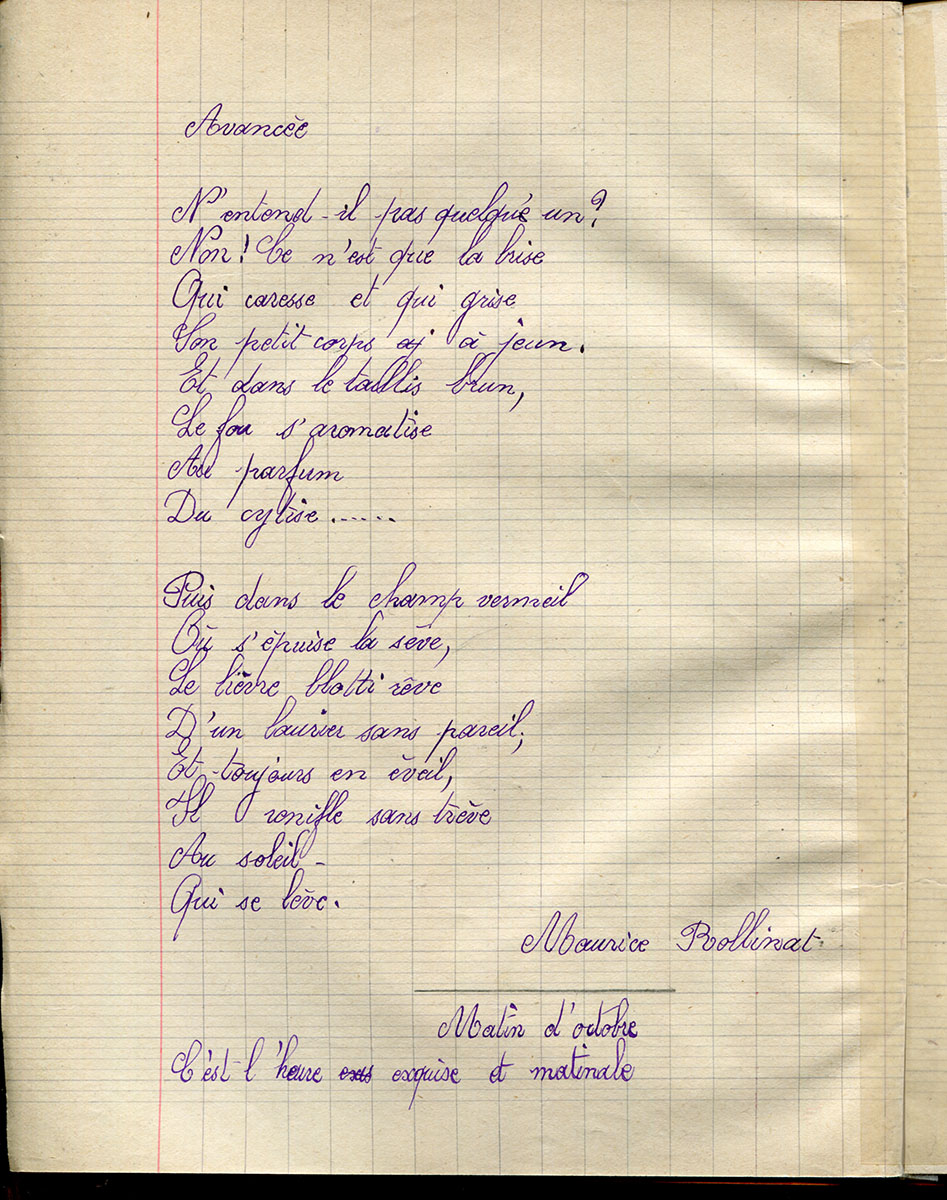 Avancée
N'entend-il pas quelqu'e un?
Non! Ce n'est que la brise
Qui caresse et qui grise
Son petit corps à jeun.
Et dans le taillis brun,
Le fou s'aromatise
Au parfum
Du cytise......
Puis dans le champ vermeil
Où s'épuise la sève,
Le lièvre blotti rêve
D'un laurier sans pareil;
Et toujours en éveil,
Il ronifle sans trève
Au soleil-
Qui se lève.
Maurice Rollinat
Matin d'octobre
C'est l'heure exquise et matinale